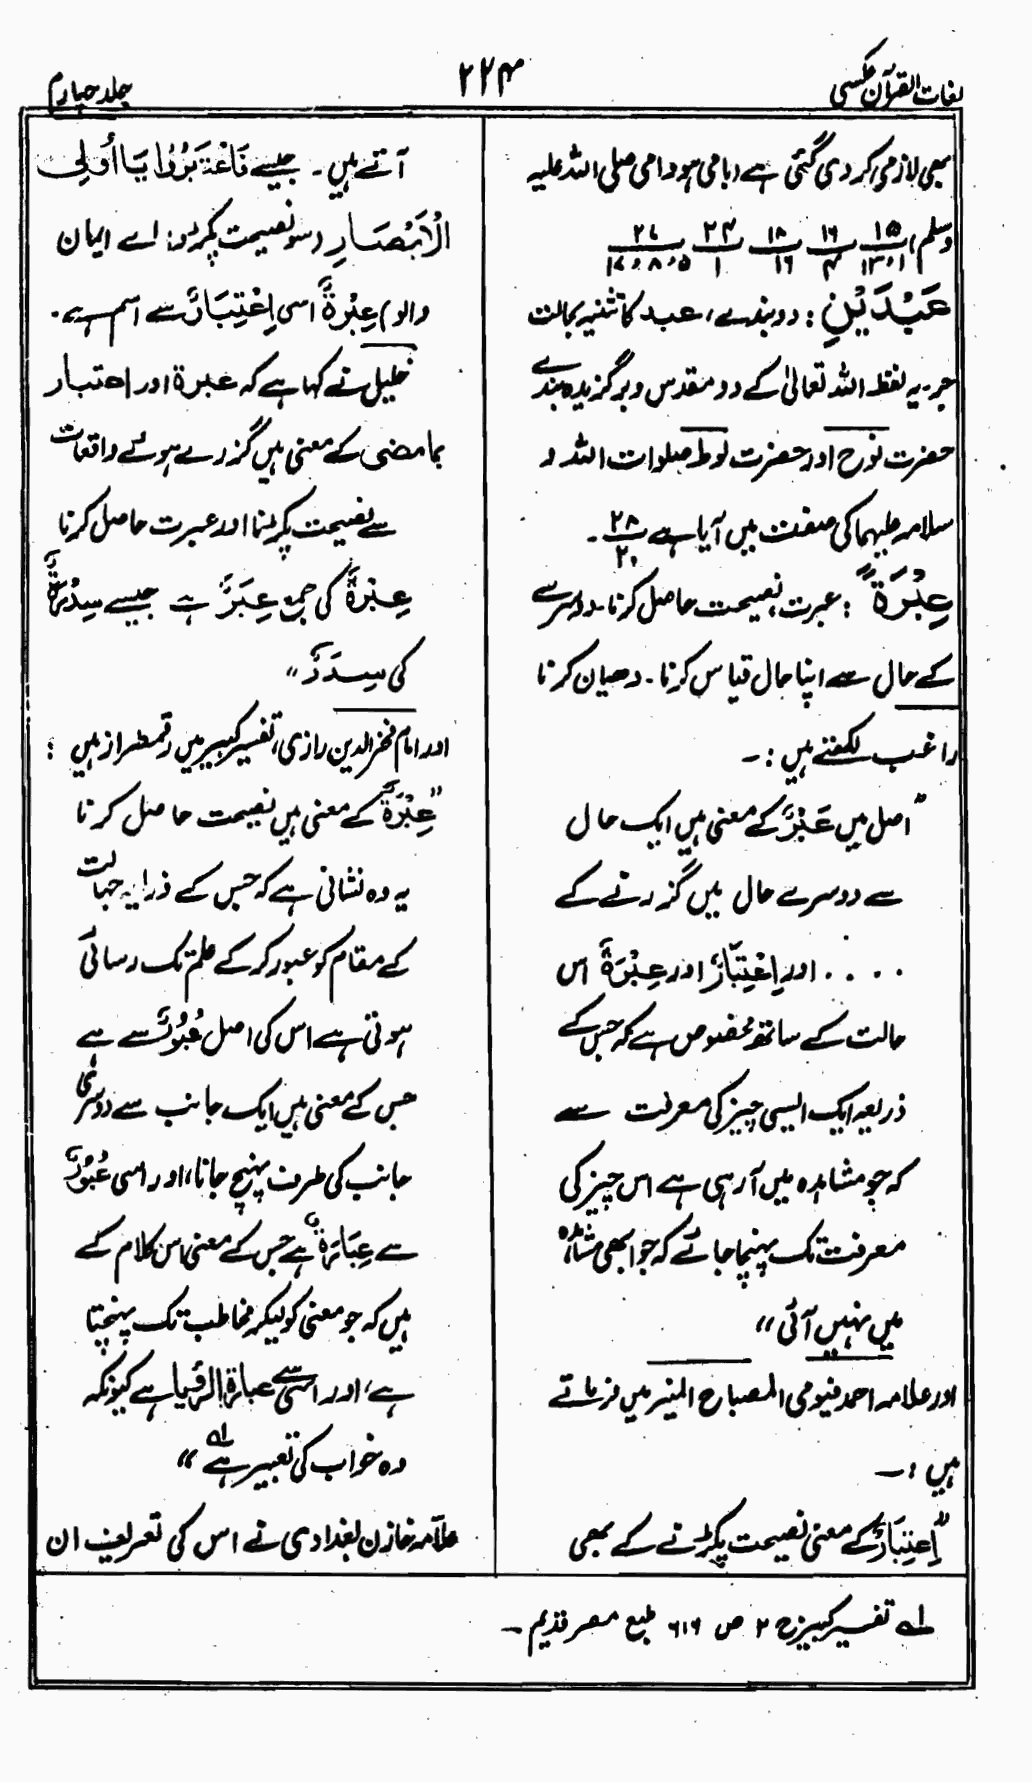 لغات القرآن عکسی
۲۲۴
جلد چہارم
بھی لازمی کردی گئی ہے (بابی ہو وامی صلی اللہ علیہ
وسلم)، ۱۵/۱۳،۱ ۱۶/۴ ۱۸/۱۶ ۲۴/۱ ۲۷/۱۷،۸،۵
عَبْدَیْنِ : دو بندے، عبد کا تثنیہ بحالت
جر۔ یہ لفظ اللہ تعالیٰ کے دو مقدس و برگزیدہ بندے
حضرت نوح اور حضرت لوط صلوات اللہ و
سلامہ علیہما کی صفت میں آیا ہے ۲۸/۲۰ ۔
عِبْرَۃً : عبرت، نصیحت حاصل کرنا۔ دوسرے
کے حال سے اپنا حال قیاس کرنا۔ دھیان کرنا
راغب لکھتے ہیں :۔
"اصل میں عَبْرٌ کے معنی ہیں ایک حال
سے دوسرے حال میں گزرنے کے
.... اور اِعْتِبَارٌ اور عِبْرَۃٌ اس
حالت کے ساتھ مخصوص ہے کہ جس کے
ذریعہ ایک ایسی چیز کی معرفت سے
کہ جو مشاہدہ میں آرہی ہے اس چیز کی
معرفت تک پہنچا جائے کہ جو ابھی مشاہدہ
میں نہیں آئی"
اور علامہ احمد فیومی المصباح المنیر میں فرماتے
ہیں :۔
"اِعْتِبَارٌ کے معنی نصیحت پکڑنے کے بھی
آتے ہیں۔ جیسے فَاعْتَبِرُوْا یَا اُولِی
الْاَبْصَارِ (سو نصیحت پکڑو، اے ایمان
والو) عِبْرَۃٌ اسی اِعْتِبَارٌ سے اسم ہے۔
خلیل نے کہا ہے کہ عبرۃ اور اعتبار
بما مضی کے معنی ہیں گزرے ہوئے واقعات
سے نصیحت پکڑنا اور عبرت حاصل کرنا
عِبْرَۃٌ کی جمع عِبَرٌ ہے جیسے سِدْرَۃٌ
کی سِدَرٌ"
اور امام فخرالدین رازی، تفسیر کبیر میں رقمطراز ہیں :
"عِبْرَۃٌ کے معنی ہیں نصیحت حاصل کرنا
یہ وہ نشانی ہے کہ جس کے ذریعہ جہالت
کے مقام کو عبور کرکے علم تک رسائی
ہوتی ہے اس کی اصل عُبُوْرٌ سے ہے
جس کے معنی ہیں ایک جانب سے دوسری
جانب کی طرف پہنچ جانا، اور اسی عُبُوْرٌ
سے عِبَارَۃٌ ہے جس کے معنی اس کلام کے
ہیں کہ جو معنی کو لیکر مخاطب تک پہنچتا
ہے، اور اسی سے عبارۃ الرؤیا ہے کیونکہ
وہ خواب کی تعبیر ہے لہ"
علامہ خازن بغدادی نے اس کی تعریف ان
لہ تفسیر کبیر ج ۲ ص ۶۱۶ طبع مصر قدیم۔